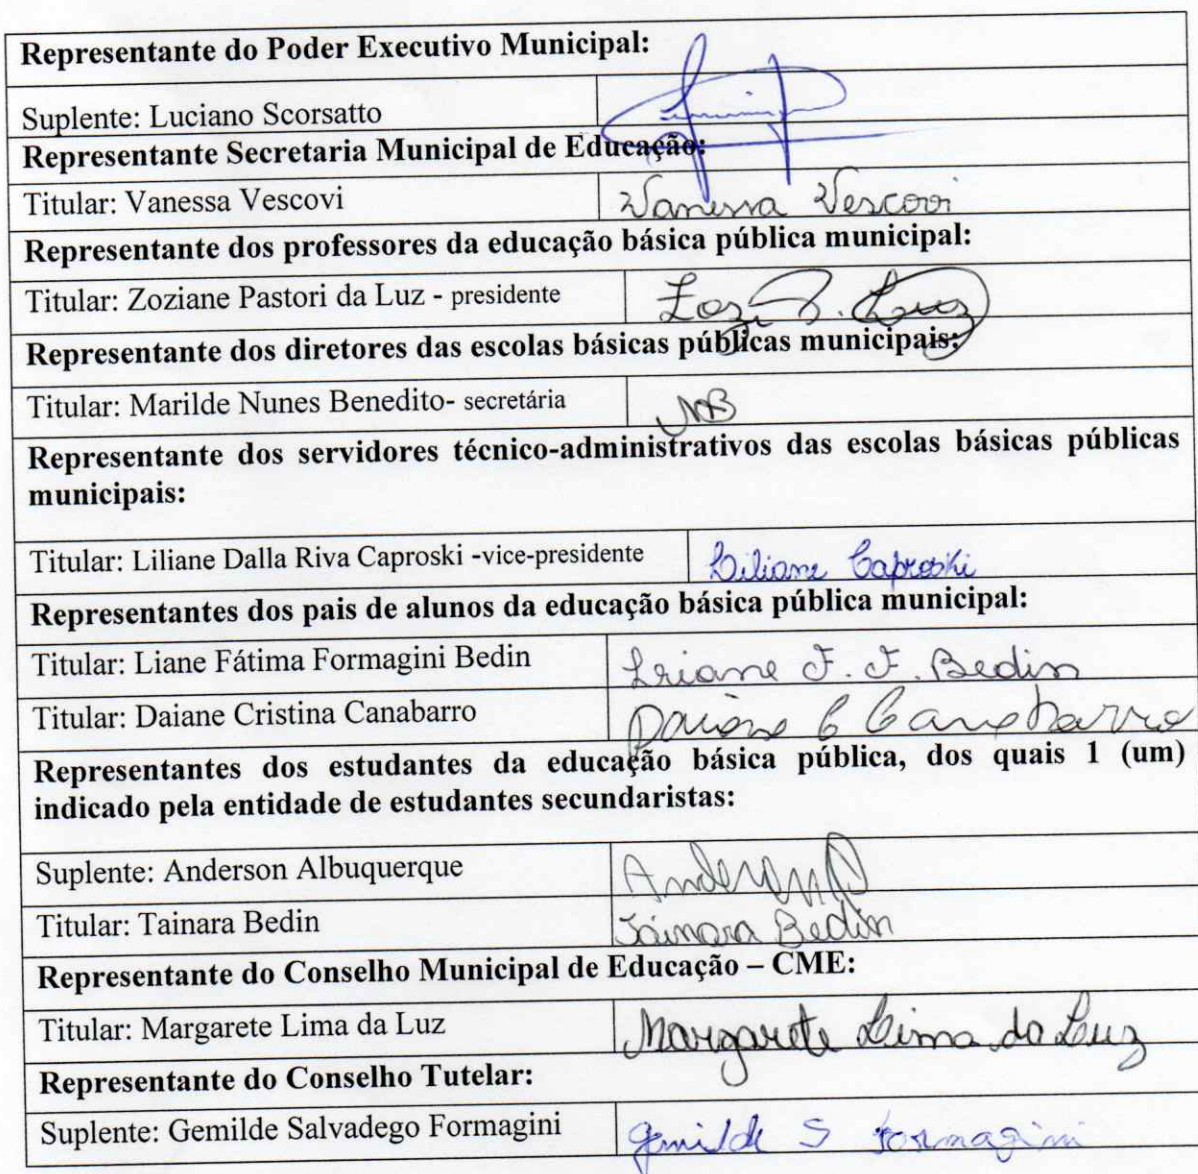 Representante do Poder Executivo Municipal:
Suplente: Luciano Scorsatto
Representante Secretaria Municipal de Educação:
Titular: Vanessa Vescovi Vanessa Vescovi
Representante dos professores da educação básica pública municipal:
Titular: Zoziane Pastori da Luz - presidente Luz
Representante dos diretores das escolas básicas públicas municipais:
Titular: Marilde Nunes Benedito- secretária MB
Representante dos servidores técnico-administrativos das escolas básicas públicas
municipais:
Titular: Liliane Dalla Riva Caproski -vice-presidente Liliane Caproski
Representantes dos pais de alunos da educação básica pública municipal:
Titular: Liane Fátima Formagini Bedin Liane F. F. Bedin
Titular: Daiane Cristina Canabarro Daiane C Canabarro
Representantes dos estudantes da educação básica pública, dos quais 1 (um)
indicado pela entidade de estudantes secundaristas:
Suplente: Anderson Albuquerque Anderson
Titular: Tainara Bedin Tainara Bedin
Representante do Conselho Municipal de Educação – CME:
Titular: Margarete Lima da Luz Margarete Lima da Luz
Representante do Conselho Tutelar:
Suplente: Gemilde Salvadego Formagini Gemilde S Formagini